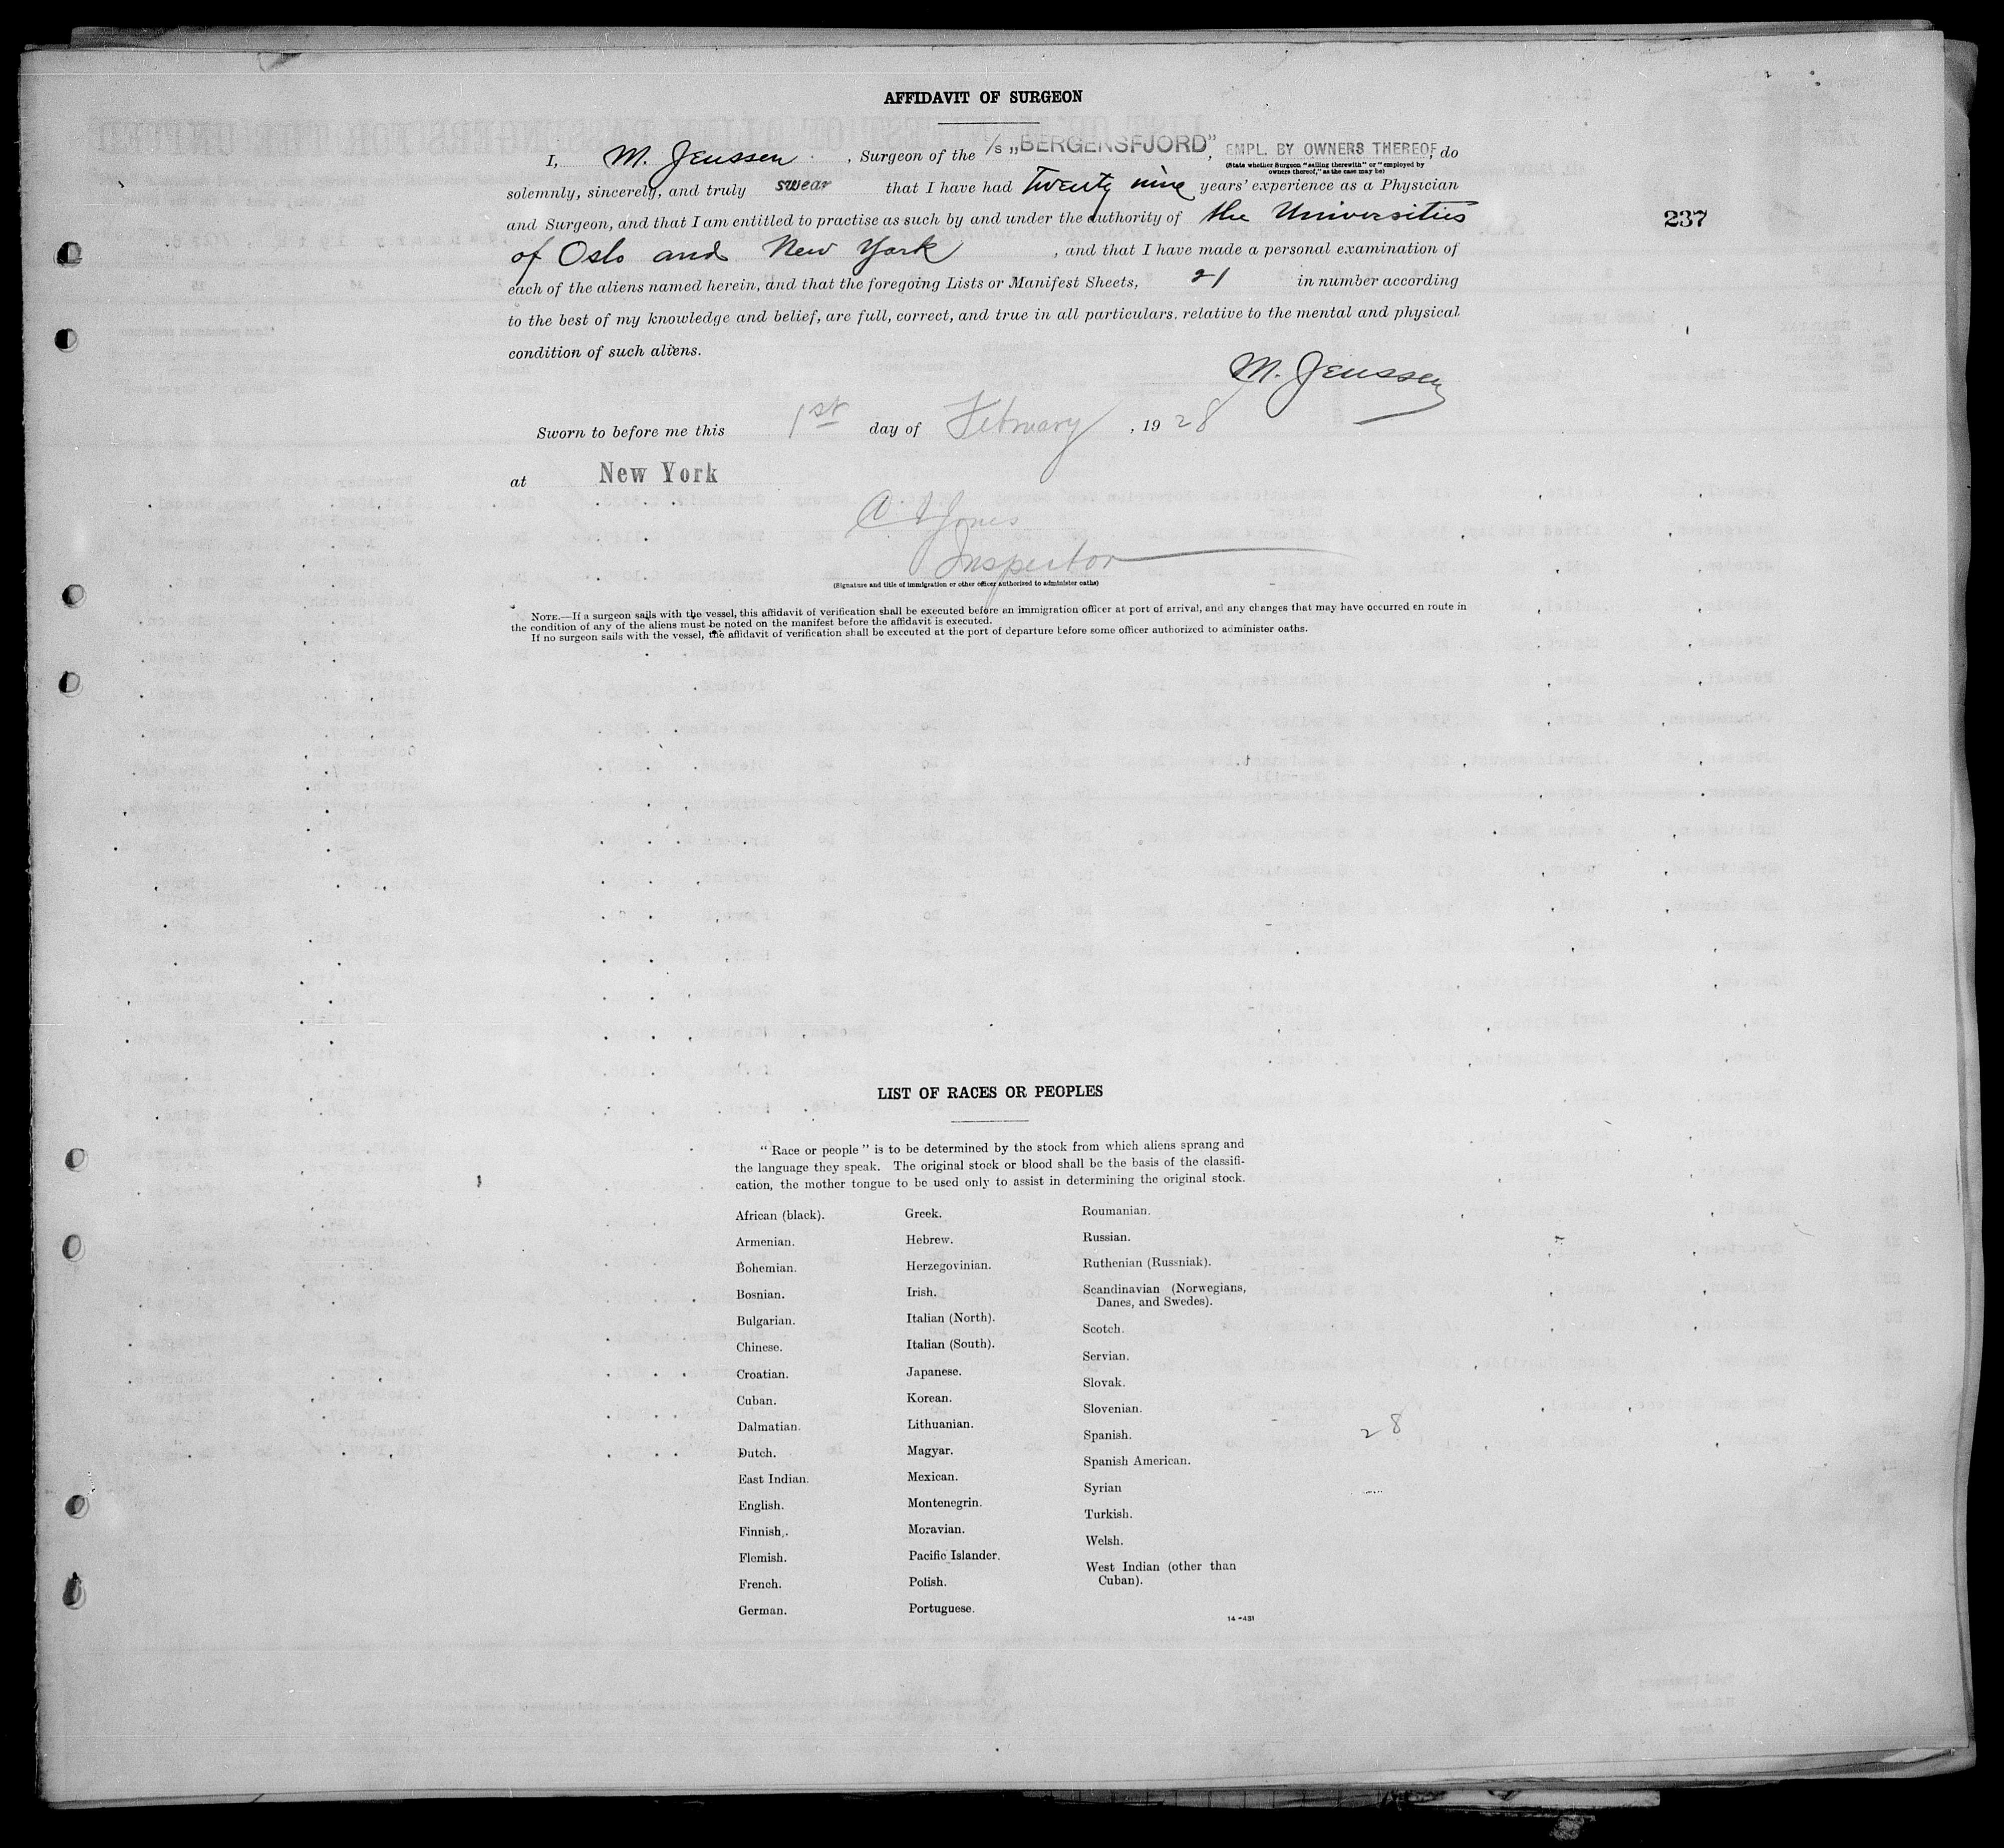 AFFIDAVIT OF SURGEON
I, M. Jenssen, Surgeon of the S/S „BERGENSFJORD”, EMPL. BY OWNERS THEREOF, do
(State whether Surgeon “sailing therewith” or “employed by
owners thereof,” as the case may be)
solemnly, sincerely, and truly swear that I have had Twenty nine years’ experience as a Physician
and Surgeon, and that I am entitled to practise as such by and under the authority of the Universities
237
of Oslo and New York, and that I have made a personal examination of
each of the aliens named herein, and that the foregoing Lists or Manifest Sheets, 21 in number according
to the best of my knowledge and belief, are full, correct, and true in all particulars, relative to the mental and physical
condition of such aliens.
M. Jenssen
Sworn to before me this 1st day of February, 1928
at New York
Jones
Inspector
(Signature and title of immigration or other officer authorized to administer oaths)
NOTE.—If a surgeon sails with the vessel, this affidavit of verification shall be executed before an immigration officer at port of arrival, and any changes that may have occurred en route in
the condition of any of the aliens must be noted on the manifest before the affidavit is executed.
If no surgeon sails with the vessel, the affidavit of verification shall be executed at the port of departure before some officer authorized to administer oaths.
LIST OF RACES OR PEOPLES
“Race or people” is to be determined by the stock from which aliens sprang and
the language they speak. The original stock or blood shall be the basis of the classifi-
cation, the mother tongue to be used only to assist in determining the original stock.
African (black).
Armenian.
Bohemian.
Bosnian.
Bulgarian.
Chinese.
Croatian.
Cuban.
Dalmatian.
Dutch.
East Indian.
English.
Finnish.
Flemish.
French.
German.
Greek.
Hebrew.
Herzegovinian.
Irish.
Italian (North).
Italian (South).
Japanese.
Korean.
Lithuanian.
Magyar.
Mexican.
Montenegrin.
Moravian.
Pacific Islander.
Polish.
Portuguese.
Roumanian.
Russian.
Ruthenian (Russniak).
Scandinavian (Norwegians,
Danes, and Swedes).
Scotch.
Servian.
Slovak.
Slovenian.
Spanish.
Spanish American.
Syrian
Turkish.
Welsh.
West Indian (other than
Cuban).
28
14-431